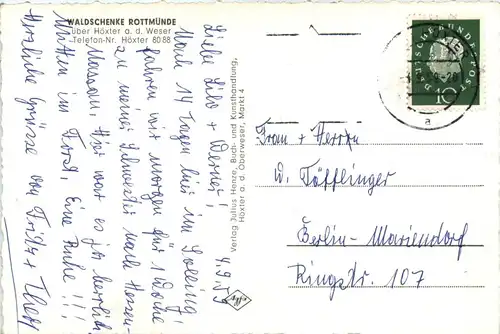 WALDSCHENKE ROTTMÜNDE
über Höxter a. d. Weser
Telefon-Nr. Höxter 8088
4.9.59
Liebe Lilo + Werner!
Nach 14 Tagen hier im Solling
fahren wir morgen für 1 Woche
zu meiner Schwester nach Hessen-
Nassau. Hier war es ja herrlich
Mitten im Forst. Eine Ruhe!!!
Herzliche Grüsse von Fritz +
Verlag Julius Henze, Buch- und Kunsthandlung,
Höxter a. d. Oberweser, Markt 4
DEUTSCHE BUNDESPOST
10
a
Frau + Herrn
W. Töfflinger
Berlin-Mariendorf
Ringstr. 107